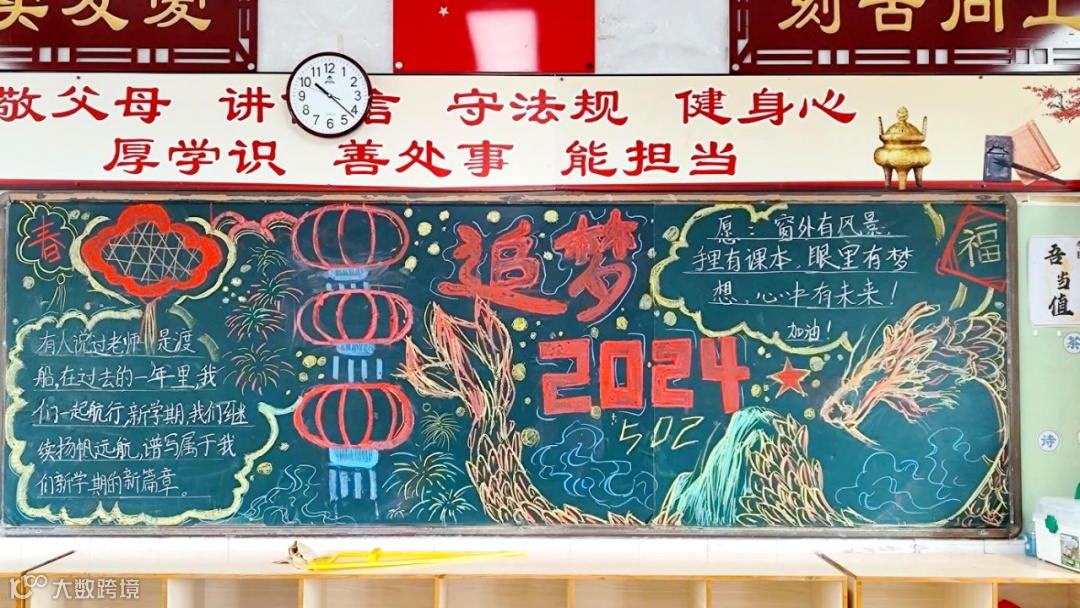 友爱
刻苦
敬父母 讲 言 守法规 健身心
厚学识 善处事 能担当
12
1
2
3
4
5
6
7
8
9
10
11
春
追梦
2024
502
有人说过老师 是渡
船,在过去的一年里,我
们一起航行,新学期,我们继
续扬帆远航,谱写属于我
们新学期的新篇章。
愿:窗外有风景,
里有课本,眼里有梦
想,心中有未来!
加油!
福
吾当值
茶
诗
大数跨境